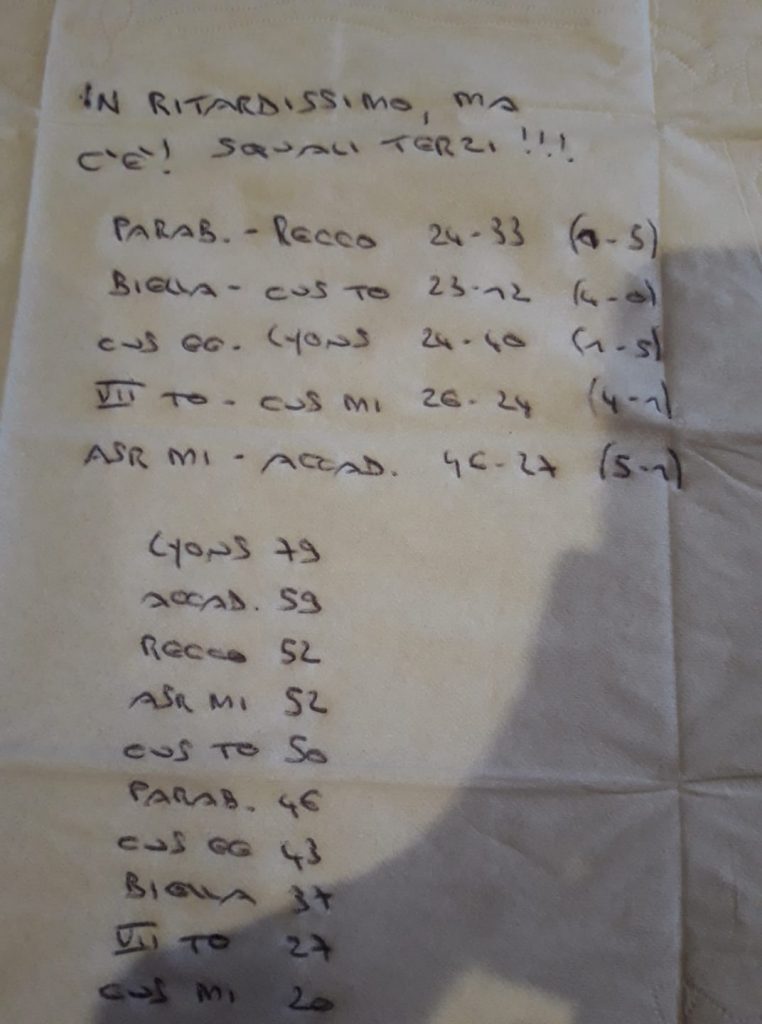 IN RITARDISSIMO, MA
C'È! SQUALI TERZI!!!
PARAB. - RECCO 24-33 (0-5)
BIELLA - CUS TO 23-12 (4-0)
CUS GE - LYONS 24-40 (1-5)
VII TO - CUS MI 26-24 (4-1)
ASR MI - ACCAD. 46-27 (5-1)
LYONS 79
ACCAD. 59
RECCO 52
ASR MI 52
CUS TO 50
PARAB. 46
CUS GE 43
BIELLA 37
VII TO 27
CUS MI 20